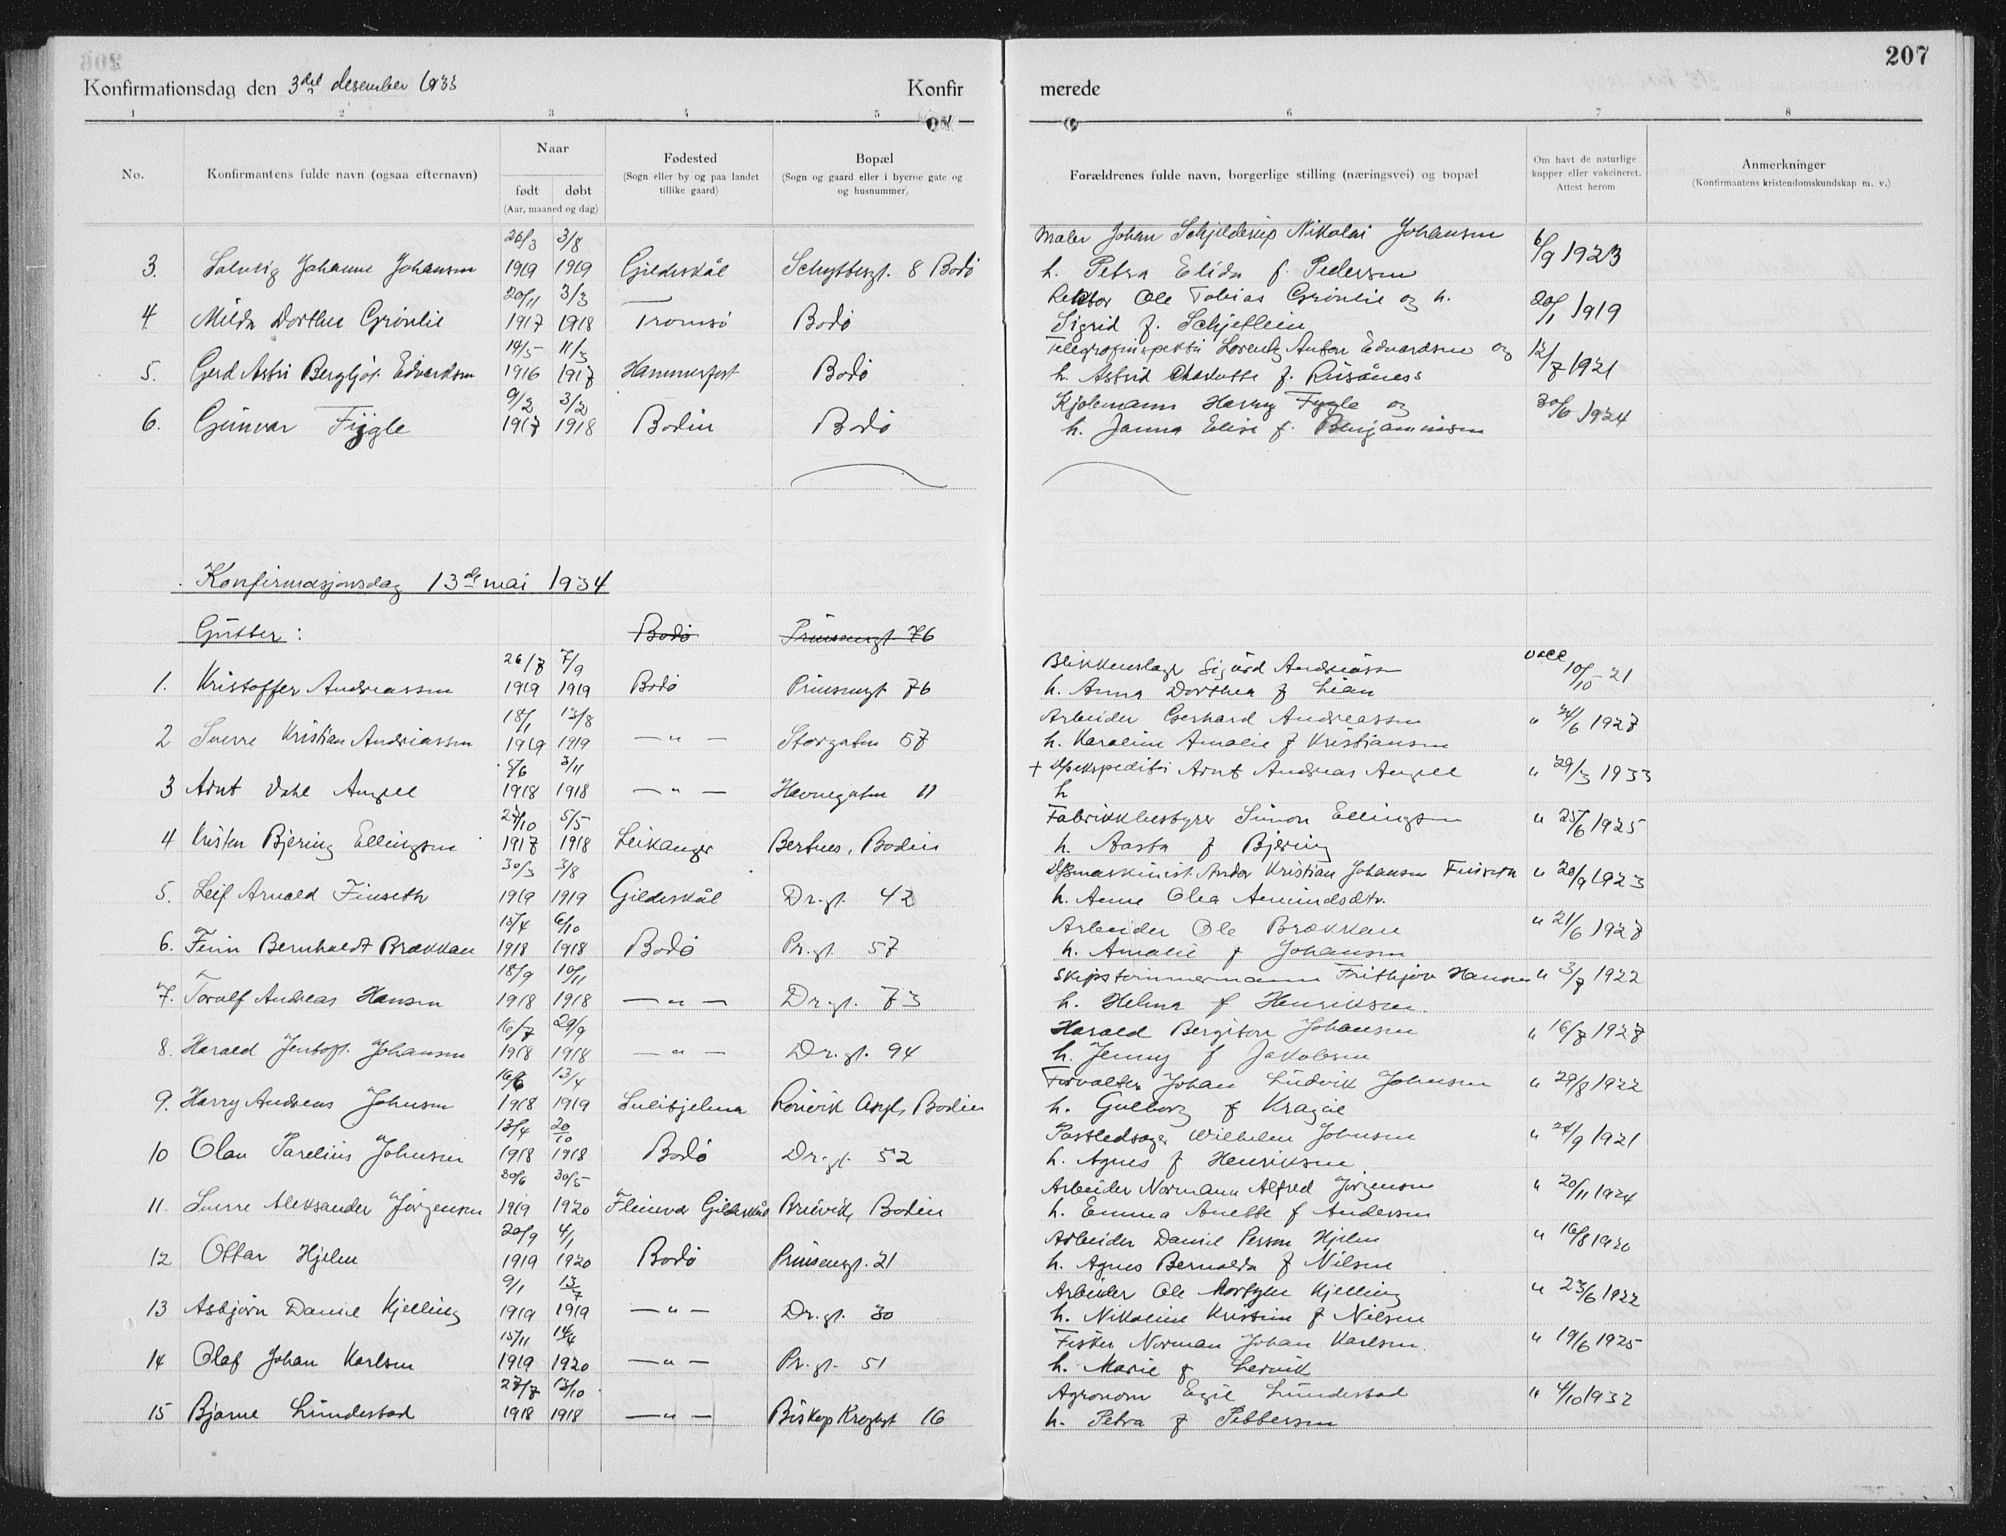 207
Konfirmationsdag den 3die desember 1933
Konfirmerede
1 2 3 4 5 6 7 8
No.
Konfirmantens fulde navn (ogsaa efternavn)
Naar
født døbt
(Aar, maaned og dag)
Fødested
(Sogn eller by og paa landet tillike gaard)
Bopæl
(Sogn og gaard eller i byerne gate og og husnummer)
Forældrenes fulde navn, borgerlige stilling (næringsvei) og bopæl
Om havt de naturlige kopper eller vakcineret. Attest herom
Anmerkninger
(Konfirmantens kristendomskundskap m. v.)
26/3 3/8 Maler Johan Schjelderup Nikolai Johansen
3. Solveig Johanne Johansen 1919 1919 Gildeskål 8 Bodø h. Petra Elida f. Pedersen 6/9 1923
20/11 3/3 Rektor Ole Tobias Grønlie og h.
4 Milda Dorthea Grønlie 1917 1918 Tromsø Bodø Sigrid f. Schjetlein 20/1 1919
14/5 11/3 Telegrafinspektør Lorentz Anton Edvardsen og
5. Gerd Astri Bergljot Edvardsen 1916 1917 Hammerfest Bodø h. Astrid Charlotte f. 12/7 1921
9/2 3/2 Kjøbmann Harry Fygle og
6. Gunvar Fygle 1917 1918 Bodin Bodø h. Janna Elise f. Benjaminsen 30/6 1924
Konfirmasjonsdag 13de mai 1934
Gutter: Bodø Prinsensgt. 76
26/7 7/9 Blikkenslager Sigurd Andreassen
1. Kristoffer Andreassen 1919 1919 Bodø Prinsensgt 76 h. Anna Dorthea f Lian vacc 10/10-21
18/1 13/8 Arbeider Gerhard Andreassen
2 Sverre Kristian Andreassen 1919 1919 — " — Storgaten 57 h. Karoline Amalie f Kristiansen " 24/6 1927
5/6 3/11 + Dpekspeditør Arnt Andreas Angell
3 Arnt Dahl Angell 1918 1918 — " — Havnegaten 11 h " 29/3 1933
27/10 5/5 Fabrikkbestyrer Simon Ellingsen
4 Kristen Bjering Ellingsen 1917 1918 Leikanger Bertnes, Bodin h. Aasta f Bjering " 25/6 1925
30/3 3/8 Dpmaskinist Ander Kristian Johansen Finseth
5. Leif Arnold Finseth 1919 1919 Gildeskål Dr.gt. 42 h. Anne Olea Amundsdtr. " 20/9 1923
15/4 6/10 Arbeider Ole Brækkan
6. Finn Bernhardt Brækkan 1918 1918 Bodø Pr.gt. 57 h. Amalie f Johansen " 21/6 1927
18/9 10/11 Skipstømmermann Frithjov Hansen
7. Toralf Andreas Hansen 1918 1918 — " — Dr.gt. 73 h. Helma f Henriksen. " 3/7 1922
16/7 29/9 Harald Bergiton Johansen
8. Harald Jentoft Johansen 1918 1918 — " — Dr.gt. 94 h. Jenny f Jakobsen " 16/7 1927
16/6 13/4 Forvalter Johan Ludvik Johnsen
9. Harry Andreas Johnsen 1918 1919 Sulitjelma Rønvik Asyl, Bodin h. Gulborg f " 29/8 1922
13/4 20/10 Postledsager Wilhelm Johnsen
10 Olav Parelius Johnsen 1918 1918 Bodø Dr.gt. 52 h. Agnes f Henriksen. " 24/9 1921
30/6 30/5 Arbeider Normann Alfred Jørgensen
11. Sverre Aleksander Jørgensen 1919 1920 Fleinvær Gildeskål Breivik, Bodin h. Emma Anette f Andersen " 20/11 1924
20/9 4/1 Arbeider Daniel Person Hjelm
12 Ottar Hjelm 1919 1920 Bodø Prinsensgt. 21 h. Agnes Bernalda f Nilsen " 16/8 1920
9/1 13/7 Arbeider Ole Kjelling
13 Asbjørn Daniel Kjelling 1919 1919 — " — Dr.gt. 30 h. Nikoline Kristine f Nilsen " 23/6 1922
15/11 14/4 Fisker Norman Johan Karlsen.
14 Olaf Johan Karlsen 1919 1920 — " — Pr.gt. 51 h. Marie f Lervik " 19/6 1925
27/7 13/10 Agronom Egil Lundestad
15 Bjarne Lundestad 1918 1918 — " — Biskop Kroghgt 16 h. Petra f Pettersen " 4/10 1932